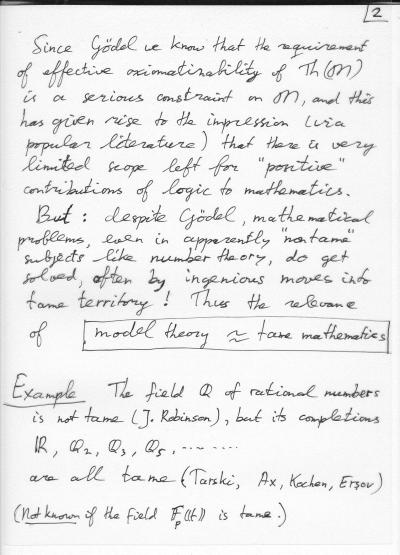 2
Since Gödel we know that the requirement
of effective axiomatizability of Th(M)
is a serious constraint on M, and this
has given rise to the impression (via
popular literature) that there is very
limited scope left for "positive"
contributions of logic to mathematics.
But: despite Gödel, mathematical
problems, even in apparently "nontame"
subjects like number theory, do get
solved, often by ingenious moves into
tame territory! Thus the relevance
of model theory ≈ tame mathematics
Example The field Q of rational numbers
is not tame (J. Robinson), but its completions
ℝ, Q₂, Q₃, Q₅, ........
are all tame (Tarski, Ax, Kochen, Eršov)
(Not known if the field 𝔽ₚ((t)) is tame.)